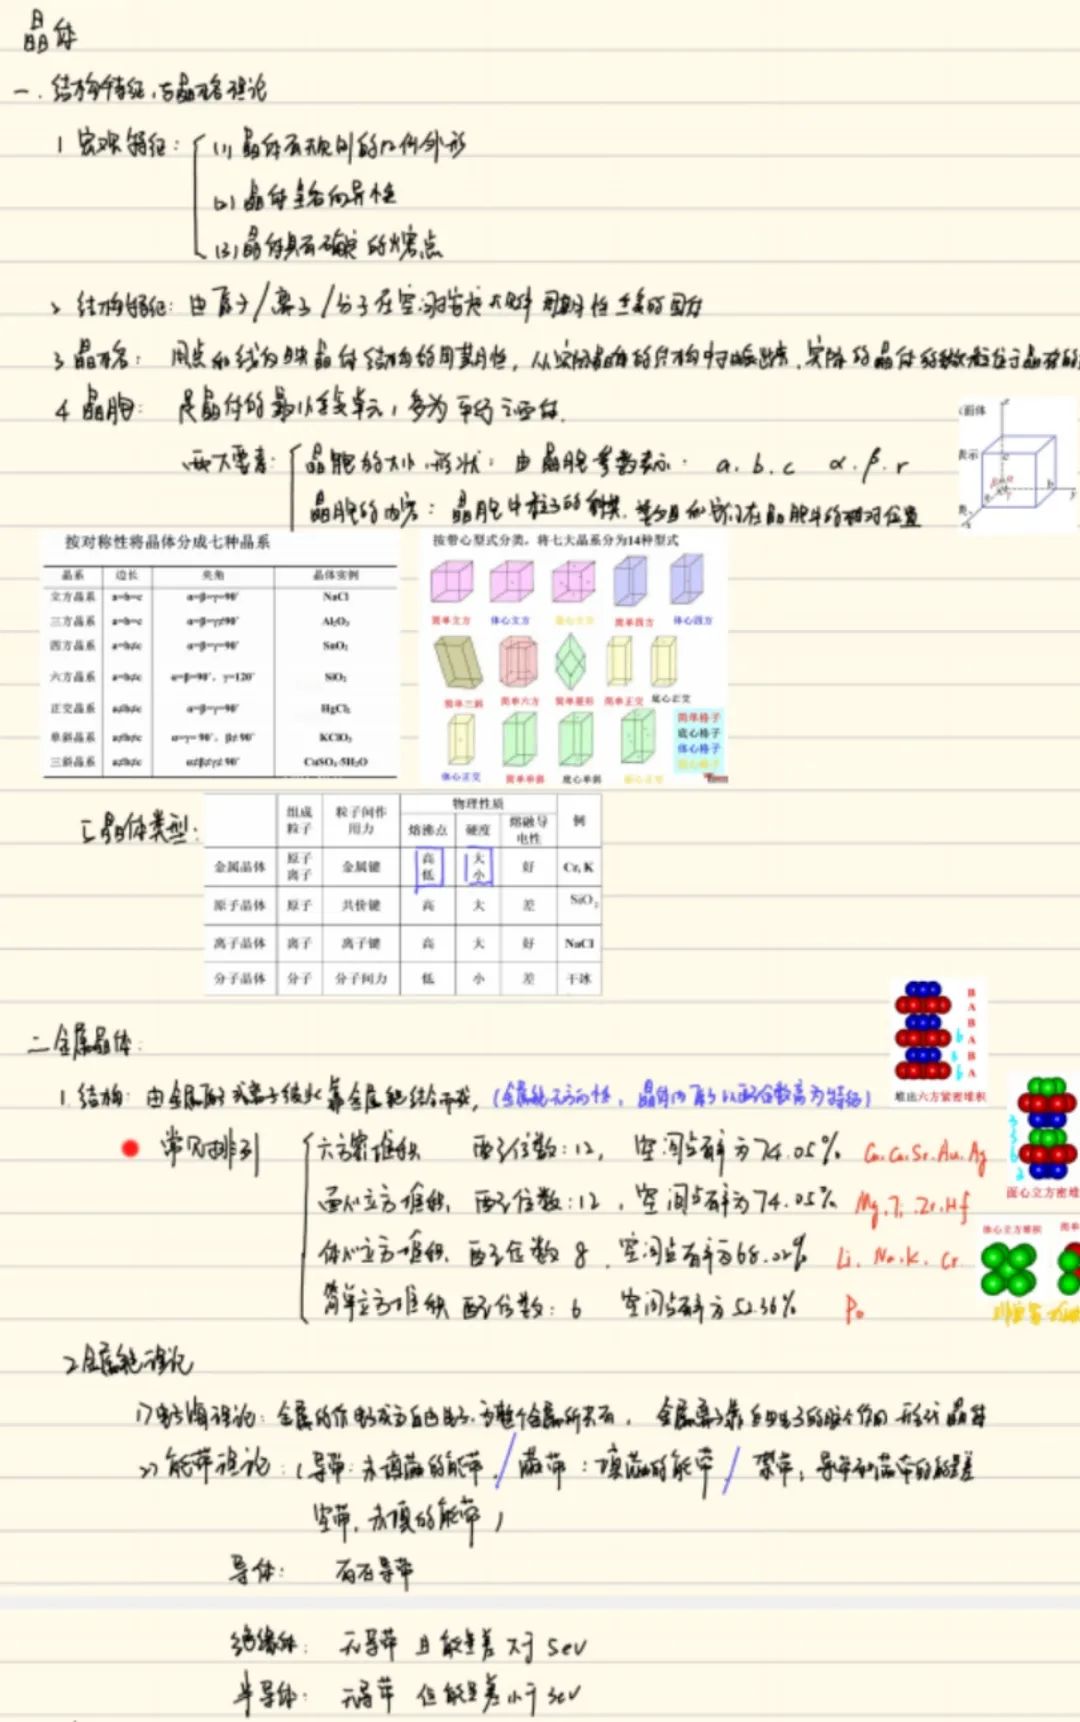 晶体
一. 结构特征与晶格理论
1 宏观特征: (1) 晶体有规则的几何外形
(2) 晶体呈各向异性
(3) 晶体具有确定的熔点
2 结构特征: 由原子/离子/分子在空间按一定规律周期性重复的固体
3 晶格: 用点和线反映晶体结构的周期性, 从实际晶体的结构中抽象出来, 实际的晶体的微粒位于晶格的
4 晶胞: 是晶体的最小重复单元, 多为平行六面体.
两大要素: 晶胞的大小.形状: 由晶胞参数表示. a. b. c α. β. r
晶胞的内容: 晶胞中粒子的种类. 数目和它们在晶胞中的相对位置
面体
表示
b
按对称性将晶体分成七种晶系
晶系 边长 夹角 晶体实例
立方晶系 a=b=c α=β=γ=90° NaCl
三方晶系 a=b=c α=β=γ≠90° Al₂O₃
四方晶系 a=b≠c α=β=γ=90° SnO₂
六方晶系 a=b≠c α=β=90°, γ=120° SiO₂
正交晶系 a≠b≠c α=β=γ=90° HgCl₂
单斜晶系 a≠b≠c α=γ=90°, β≠90° KClO₃
三斜晶系 a≠b≠c α≠β≠γ≠90° CuSO₄·5H₂O
按带心型式分类，将七大晶系分为14种型式
简单立方 体心立方 面心立方 简单四方 体心四方
简单三斜 简单六方 简单菱形 简单正交 底心正交
体心正交 简单单斜 底心单斜 面心正交
简单格子
底心格子
体心格子
面心格子
5 晶体类型:
组成粒子 粒子间作用力 物理性质 例
熔沸点 硬度 熔融导电性
金属晶体 原子 离子 金属键 高 低 大 小 好 Cr, K
原子晶体 原子 共价键 高 大 差 SiO₂
离子晶体 离子 离子键 高 大 好 NaCl
分子晶体 分子 分子间力 低 小 差 干冰
B
A
B
A
B
A
堆出六方紧密堆积
二 金属晶体:
1. 结构: 由金属原子或离子彼此靠金属键结合而成, (金属键无方向性, 晶体内原子以配位数高为特征)
常见排列 六方密堆积 配位数: 12, 空间占有率为74.05%
面心立方堆积, 配位数: 12, 空间占有率为74.05% Mg. Ti. Zr. Hf
体心立方堆积. 配位数 8, 空间占有率为68.02% Li. Na. K. Cr.
简单立方堆积 配位数: 6 空间占有率为52.36% Po
面心立方密堆
体心立方堆积 简单
2 金属键理论
1) 电子海理论: 金属的价电子成为自由电子. 为整个金属所共有, 金属离子靠自由电子的胶合作用 形成晶体
2) 能带理论: (导带: 未填满的能带, / 满带: 填满的能带 / 禁带: 导带和满带的能量差
空带. 未填的能带)
导体: 有导带
绝缘体: 无导带 且 能量差大于 5eV
半导体: 无导带 但能量差小于 3eV